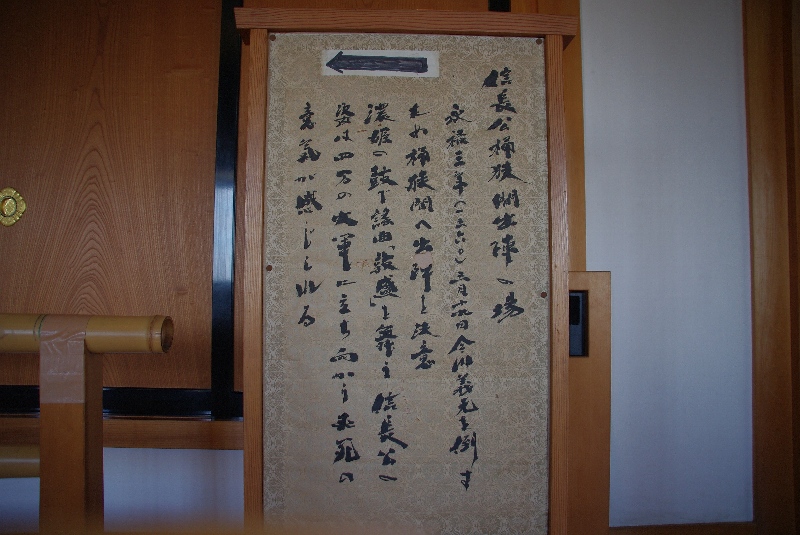 信長公桶狭間出陣の場
永禄三年(一五六〇)五月十九日今川義元を倒す
為め桶狭間へ出陣と決意
濃姫の鼓で謡曲「敦盛」を舞う信長公の
姿は四万の大軍に立ち向かう必死の
意気が感じられる